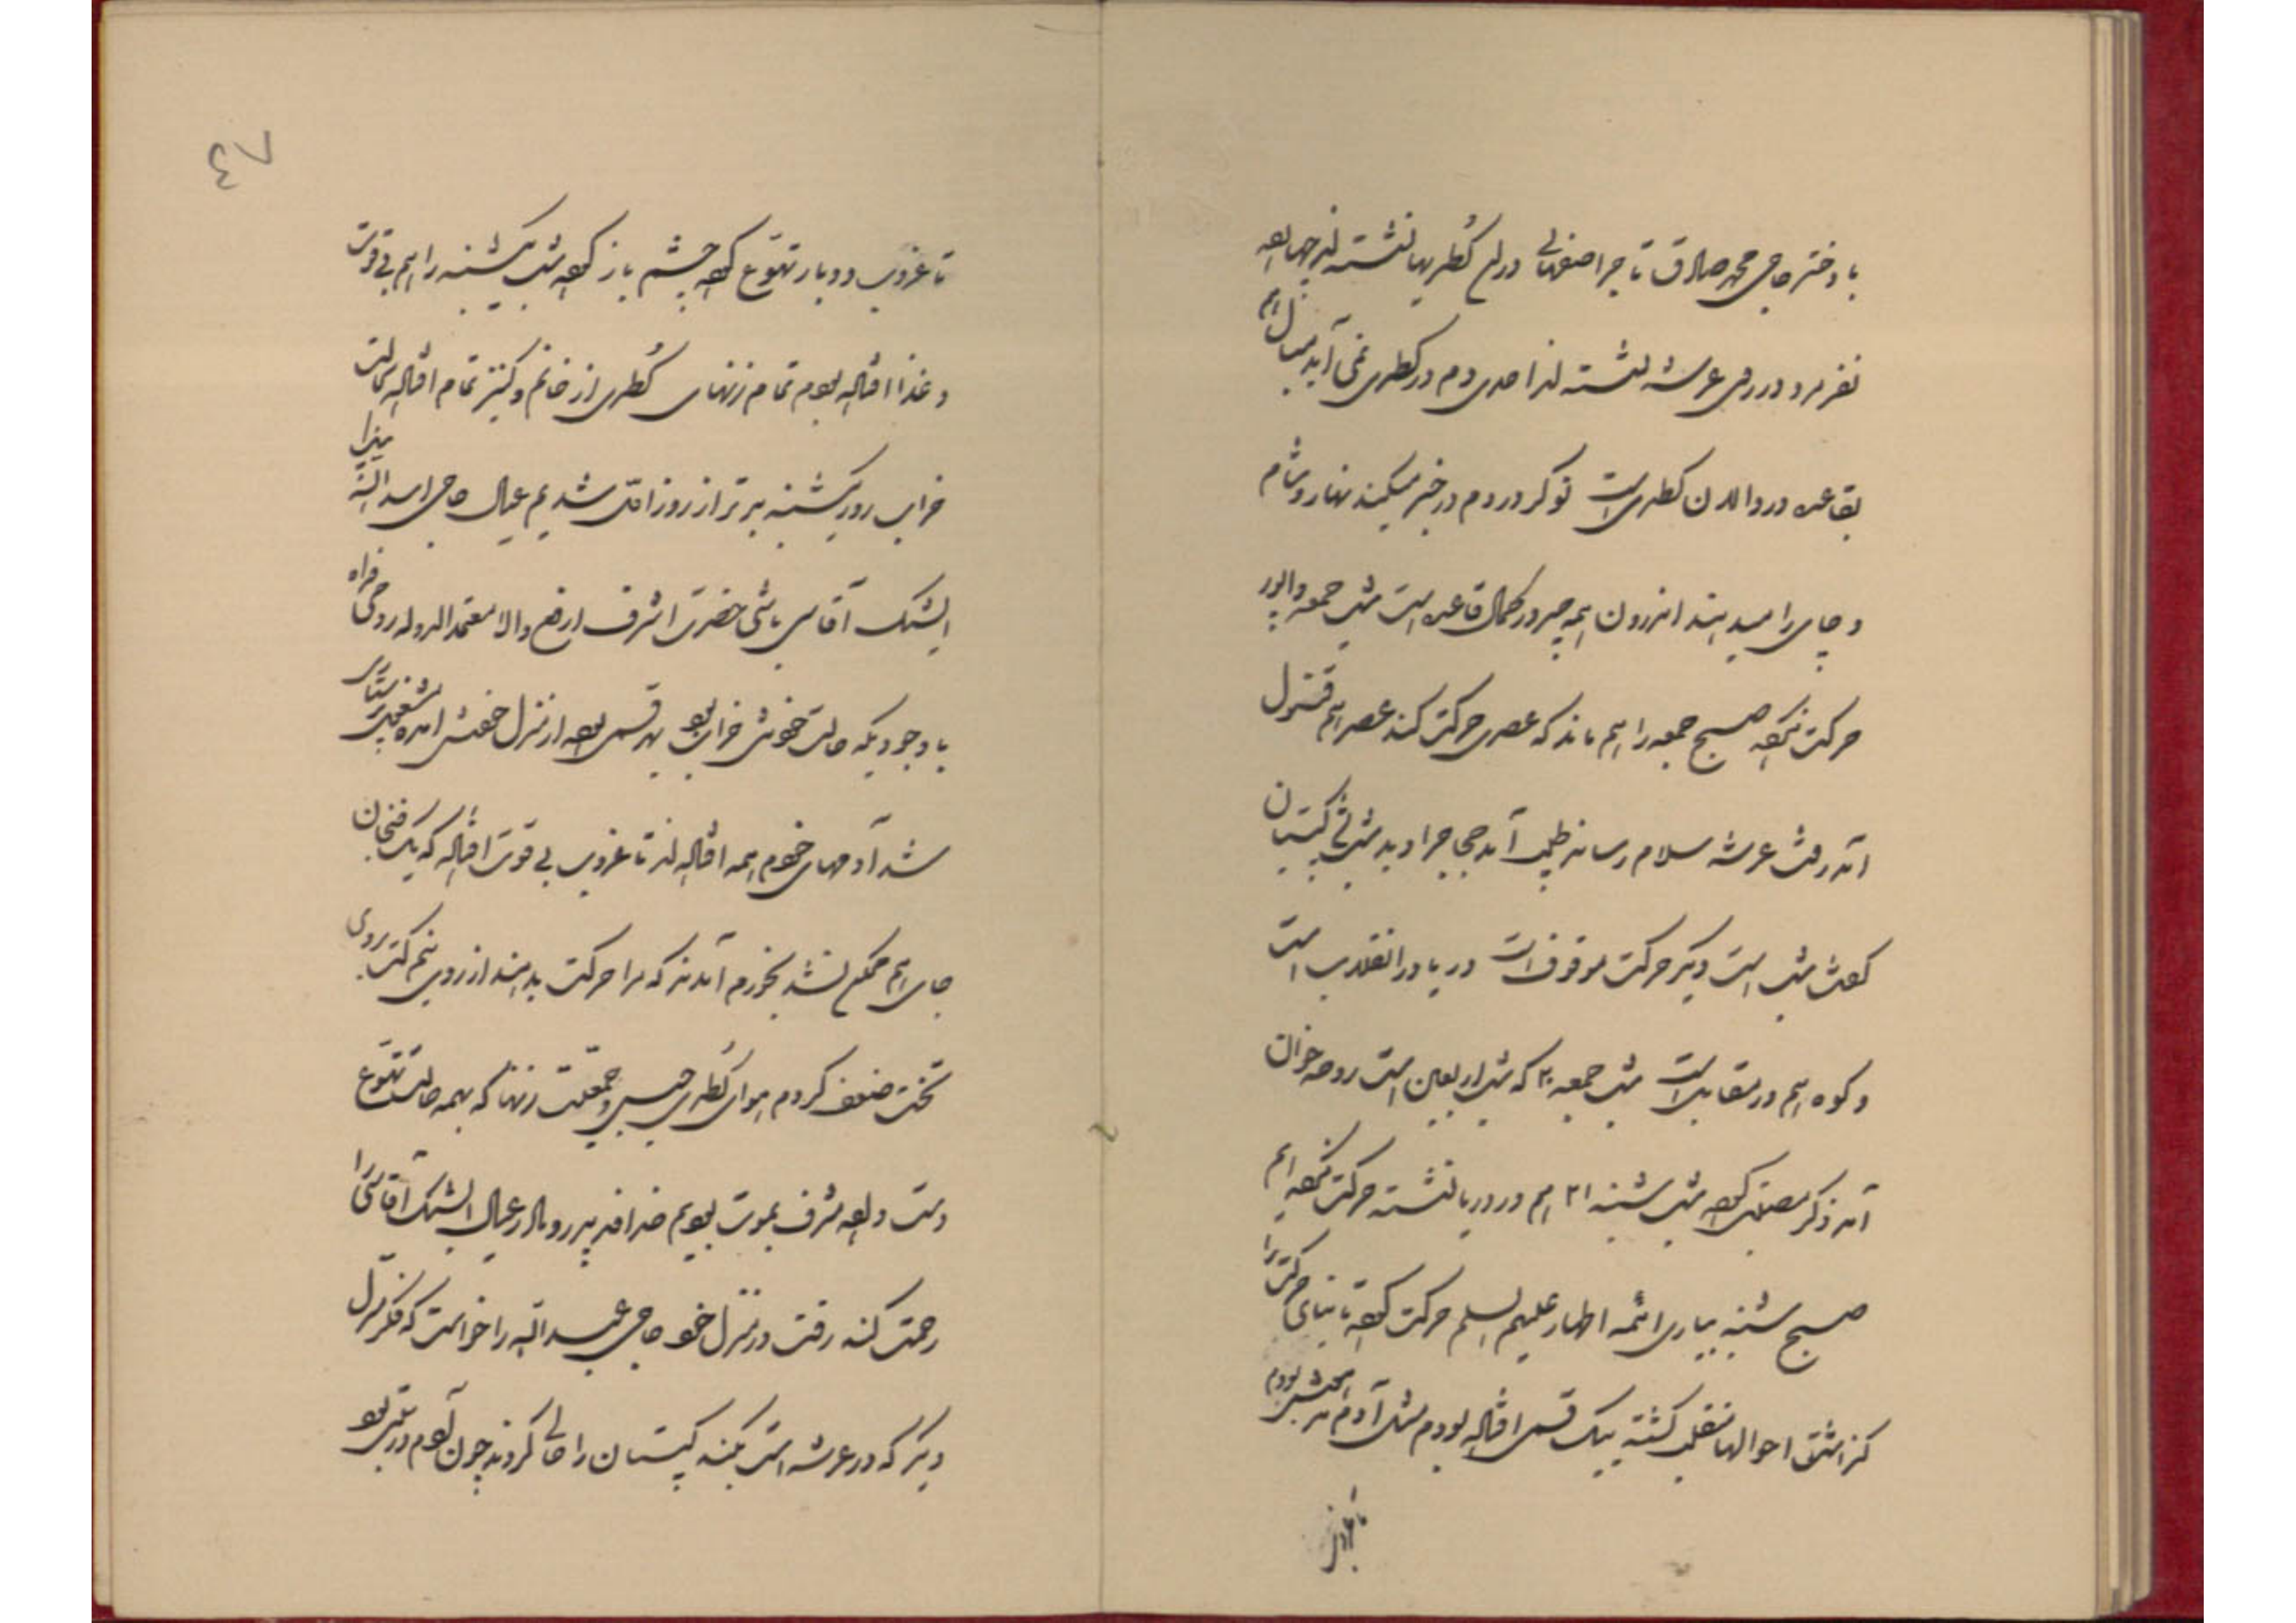 با دختر حاجی محمد صادق تاجر اصفهانی در این کُطریها نشسته‌اند چهار
نفر مرد در روی عرشه نشسته‌اند احدی دم در کطری نمی‌آید مبال هم
بقاعده در دالان کطری است نوکر دم در خبر میکند نهار و شام
و چای را میدهند اندرون همه چیز در کمال قاعده است شب جمعه واپور
حرکت نکرده صبح جمعه را هم ماند که عصری حرکت کند عصر هم قنسول
آمد رفت عرشه سلام رساند طبیب آمد حجاج را دید شب کپیتان
گفت شب است دیگر حرکت موقوف است دریا در انقلاب است
و کوه هم در مقابل است شب جمعه ۲۰ که شب اربعین است روضه خوان
آمد ذکر مصیبت کرد شب شنبه ۲۱ هم در دریا نشسته حرکت نکرده‌ایم
صبح شنبه بیاری ائمه اطهار علیهم السلام حرکت کرده تا بنای حرکت را
گذاشت احوالها منقلب گشته بیک قسمی افتاده بودم مثل آدم
تا غروب
٤٧
تا غروب دو بار تهوع کرده چشم باز کرده شب یکشنبه را هم بی قوت
و غذا افتاده بودم تمام زنهای کُطری از خانم و کنیز تمام افتاده بحالت
خراب روز یکشنبه بدتر از روز اول شدیم عیال حاجی اسدالله میرزا
ایشیک آقاسی باشی حضرت اشرف ارفع والا معتمدالدوله روحی فداه
با وجودیکه حالت خودش خراب بود بهر قسمی بود از منزل خودش آمده مشغول پرستاری
شد آدمهای خودم همه افتاده‌اند تا غروب بی قوت افتاده که یک فنجان
چای هم ممکن نشد بخورم آمدند که مرا حرکت بدهند از روی نیم کت بروی
تخت ضعف کردم هوای کُطری حبس و جمعیت زنها که بهمه حالت تهوع
دست داده مشرف بموت بودیم خدا پدر و مادر عیال ایشیک آقاسی را
رحمت کند رفت در منزل خود حاجی عبدالله را خواست که فکر منزل
دیگر که در عرشه است بکند کپیتان را حالی کردند چون